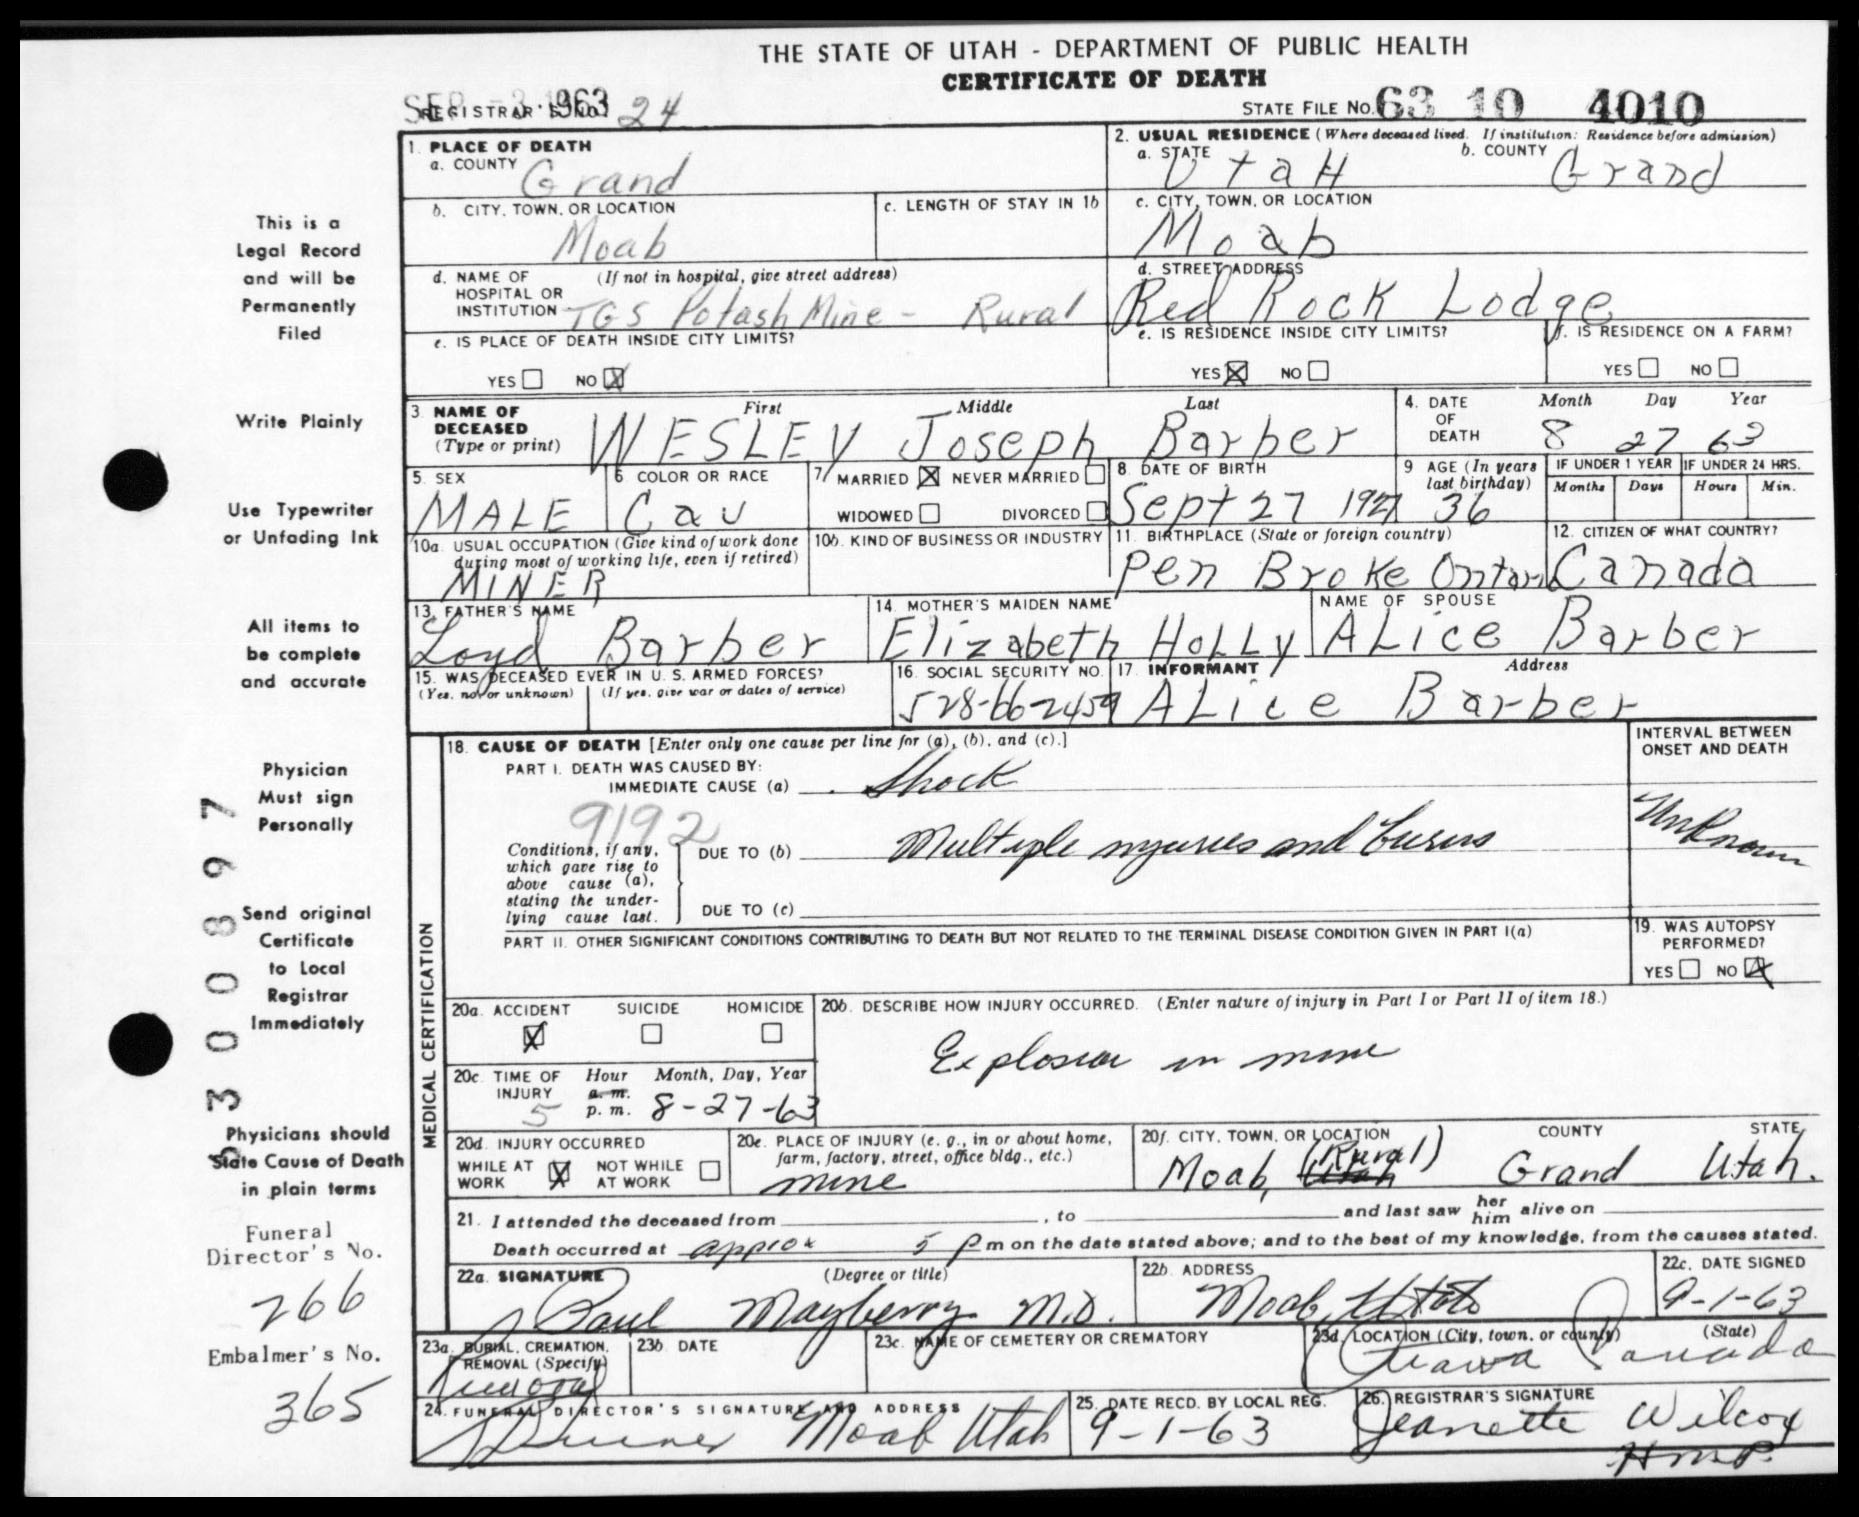 THE STATE OF UTAH - DEPARTMENT OF PUBLIC HEALTH
CERTIFICATE OF DEATH
SEP -3 1963
REGISTRAR'S NO. 24
STATE FILE NO. 63 10 4010
1. PLACE OF DEATH
a. COUNTY Grand
2. USUAL RESIDENCE (Where deceased lived. If institution: Residence before admission)
a. STATE Utah b. COUNTY Grand
b. CITY, TOWN, OR LOCATION Moab
c. LENGTH OF STAY IN 1b
c. CITY, TOWN, OR LOCATION
Moab
d. NAME OF HOSPITAL OR INSTITUTION (If not in hospital, give street address)
TGS Potash Mine - Rural
d. STREET ADDRESS
Red Rock Lodge
e. IS PLACE OF DEATH INSIDE CITY LIMITS?
YES NO X
e. IS RESIDENCE INSIDE CITY LIMITS?
YES X NO
f. IS RESIDENCE ON A FARM?
YES NO
3. NAME OF DECEASED (Type or print)
First Middle Last
WESLEY Joseph Barber
4. DATE OF DEATH Month Day Year
8 27 63
5. SEX
MALE
6 COLOR OR RACE
Cau
7 MARRIED X NEVER MARRIED
WIDOWED DIVORCED
8. DATE OF BIRTH
Sept 27 1927
9 AGE (In years last birthday)
36
IF UNDER 1 YEAR IF UNDER 24 HRS.
Months Days Hours Min.
10a. USUAL OCCUPATION (Give kind of work done during most of working life, even if retired)
MINER
10b. KIND OF BUSINESS OR INDUSTRY
11. BIRTHPLACE (State or foreign country)
Pen Broke Ontari
12. CITIZEN OF WHAT COUNTRY?
Canada
13. FATHER'S NAME
Loyd Barber
14. MOTHER'S MAIDEN NAME
Elizabeth HoLLy
NAME OF SPOUSE
ALice Barber
15. WAS DECEASED EVER IN U. S. ARMED FORCES?
(Yes, no, or unknown) (If yes, give war or dates of service)
16. SOCIAL SECURITY NO.
528-66-2459
17. INFORMANT Address
ALice Barber
MEDICAL CERTIFICATION
18. CAUSE OF DEATH [Enter only one cause per line for (a), (b), and (c).]
INTERVAL BETWEEN ONSET AND DEATH
PART I. DEATH WAS CAUSED BY:
IMMEDIATE CAUSE (a) Shock
9192
Conditions, if any, which gave rise to above cause (a), stating the underlying cause last.
DUE TO (b) Multiple injuries and burns
Unknown
DUE TO (c)
PART II. OTHER SIGNIFICANT CONDITIONS CONTRIBUTING TO DEATH BUT NOT RELATED TO THE TERMINAL DISEASE CONDITION GIVEN IN PART I(a)
19. WAS AUTOPSY PERFORMED?
YES NO X
20a. ACCIDENT SUICIDE HOMICIDE
X
20b. DESCRIBE HOW INJURY OCCURRED. (Enter nature of injury in Part I or Part II of item 18.)
Explosion in mine
20c. TIME OF INJURY Hour Month, Day, Year
5 a. m. p. m. 8-27-63
20d. INJURY OCCURRED
WHILE AT WORK X NOT WHILE AT WORK
20e. PLACE OF INJURY (e. g., in or about home, farm, factory, street, office bldg., etc.)
mine
20f. CITY, TOWN, OR LOCATION COUNTY STATE
Moab, Utah (Rural) Grand Utah.
21. I attended the deceased from , to and last saw her him alive on
Death occurred at approx 5 P m on the date stated above; and to the best of my knowledge, from the causes stated.
22a. SIGNATURE (Degree or title)
J Paul Mayberry M.D.
22b. ADDRESS
Moab, Utah
22c. DATE SIGNED
9-1-63
23a. BURIAL, CREMATION, REMOVAL (Specify)
Removal
23b. DATE
23c. NAME OF CEMETERY OR CREMATORY
23d. LOCATION (City, town, or county) (State)
Canada
24. FUNERAL DIRECTOR'S SIGNATURE AND ADDRESS
Moab Utah
25. DATE RECD. BY LOCAL REG.
9-1-63
26. REGISTRAR'S SIGNATURE
Jeanette Wilcox
This is a
Legal Record
and will be
Permanently
Filed
Write Plainly
Use Typewriter
or Unfading Ink
All items to
be complete
and accurate
Physician
Must sign
Personally
Send original
Certificate
to Local
Registrar
Immediately
Physicians should
State Cause of Death
in plain terms
Funeral
Director's No.
266
Embalmer's No.
365